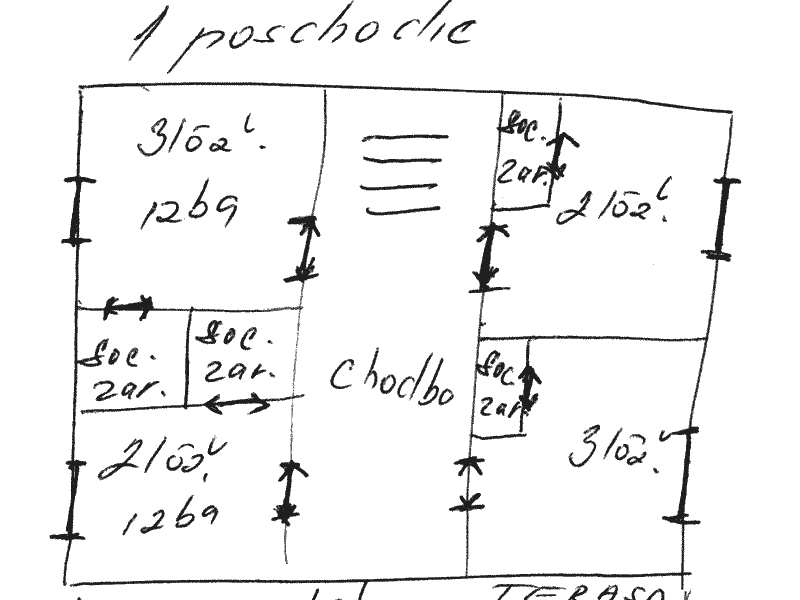 1 poschodie
3 lôž.
izba
soc.
zar.
2 lôž.
soc.
zar.
soc.
zar.
chodba
soc.
zar.
2 lôž.
izba
3 lôž.
TERASA